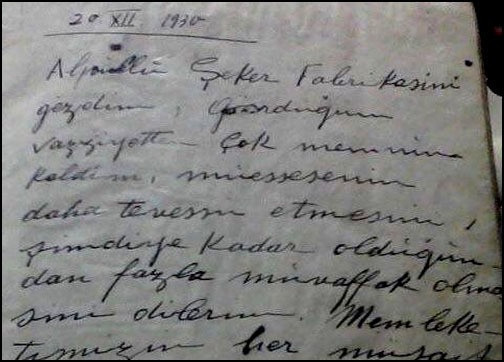 20 XII. 1930
Alpullu Şeker Fabrikasini
gezdim, Gördüğüm
vaziyetten Çok memnun
kaldım, müessesenin
daha tevessü etmesini,
şimdiye kadar olduğun
dan fazla muvaffak olma
sını dilerim. Memleke
timizin her müsait